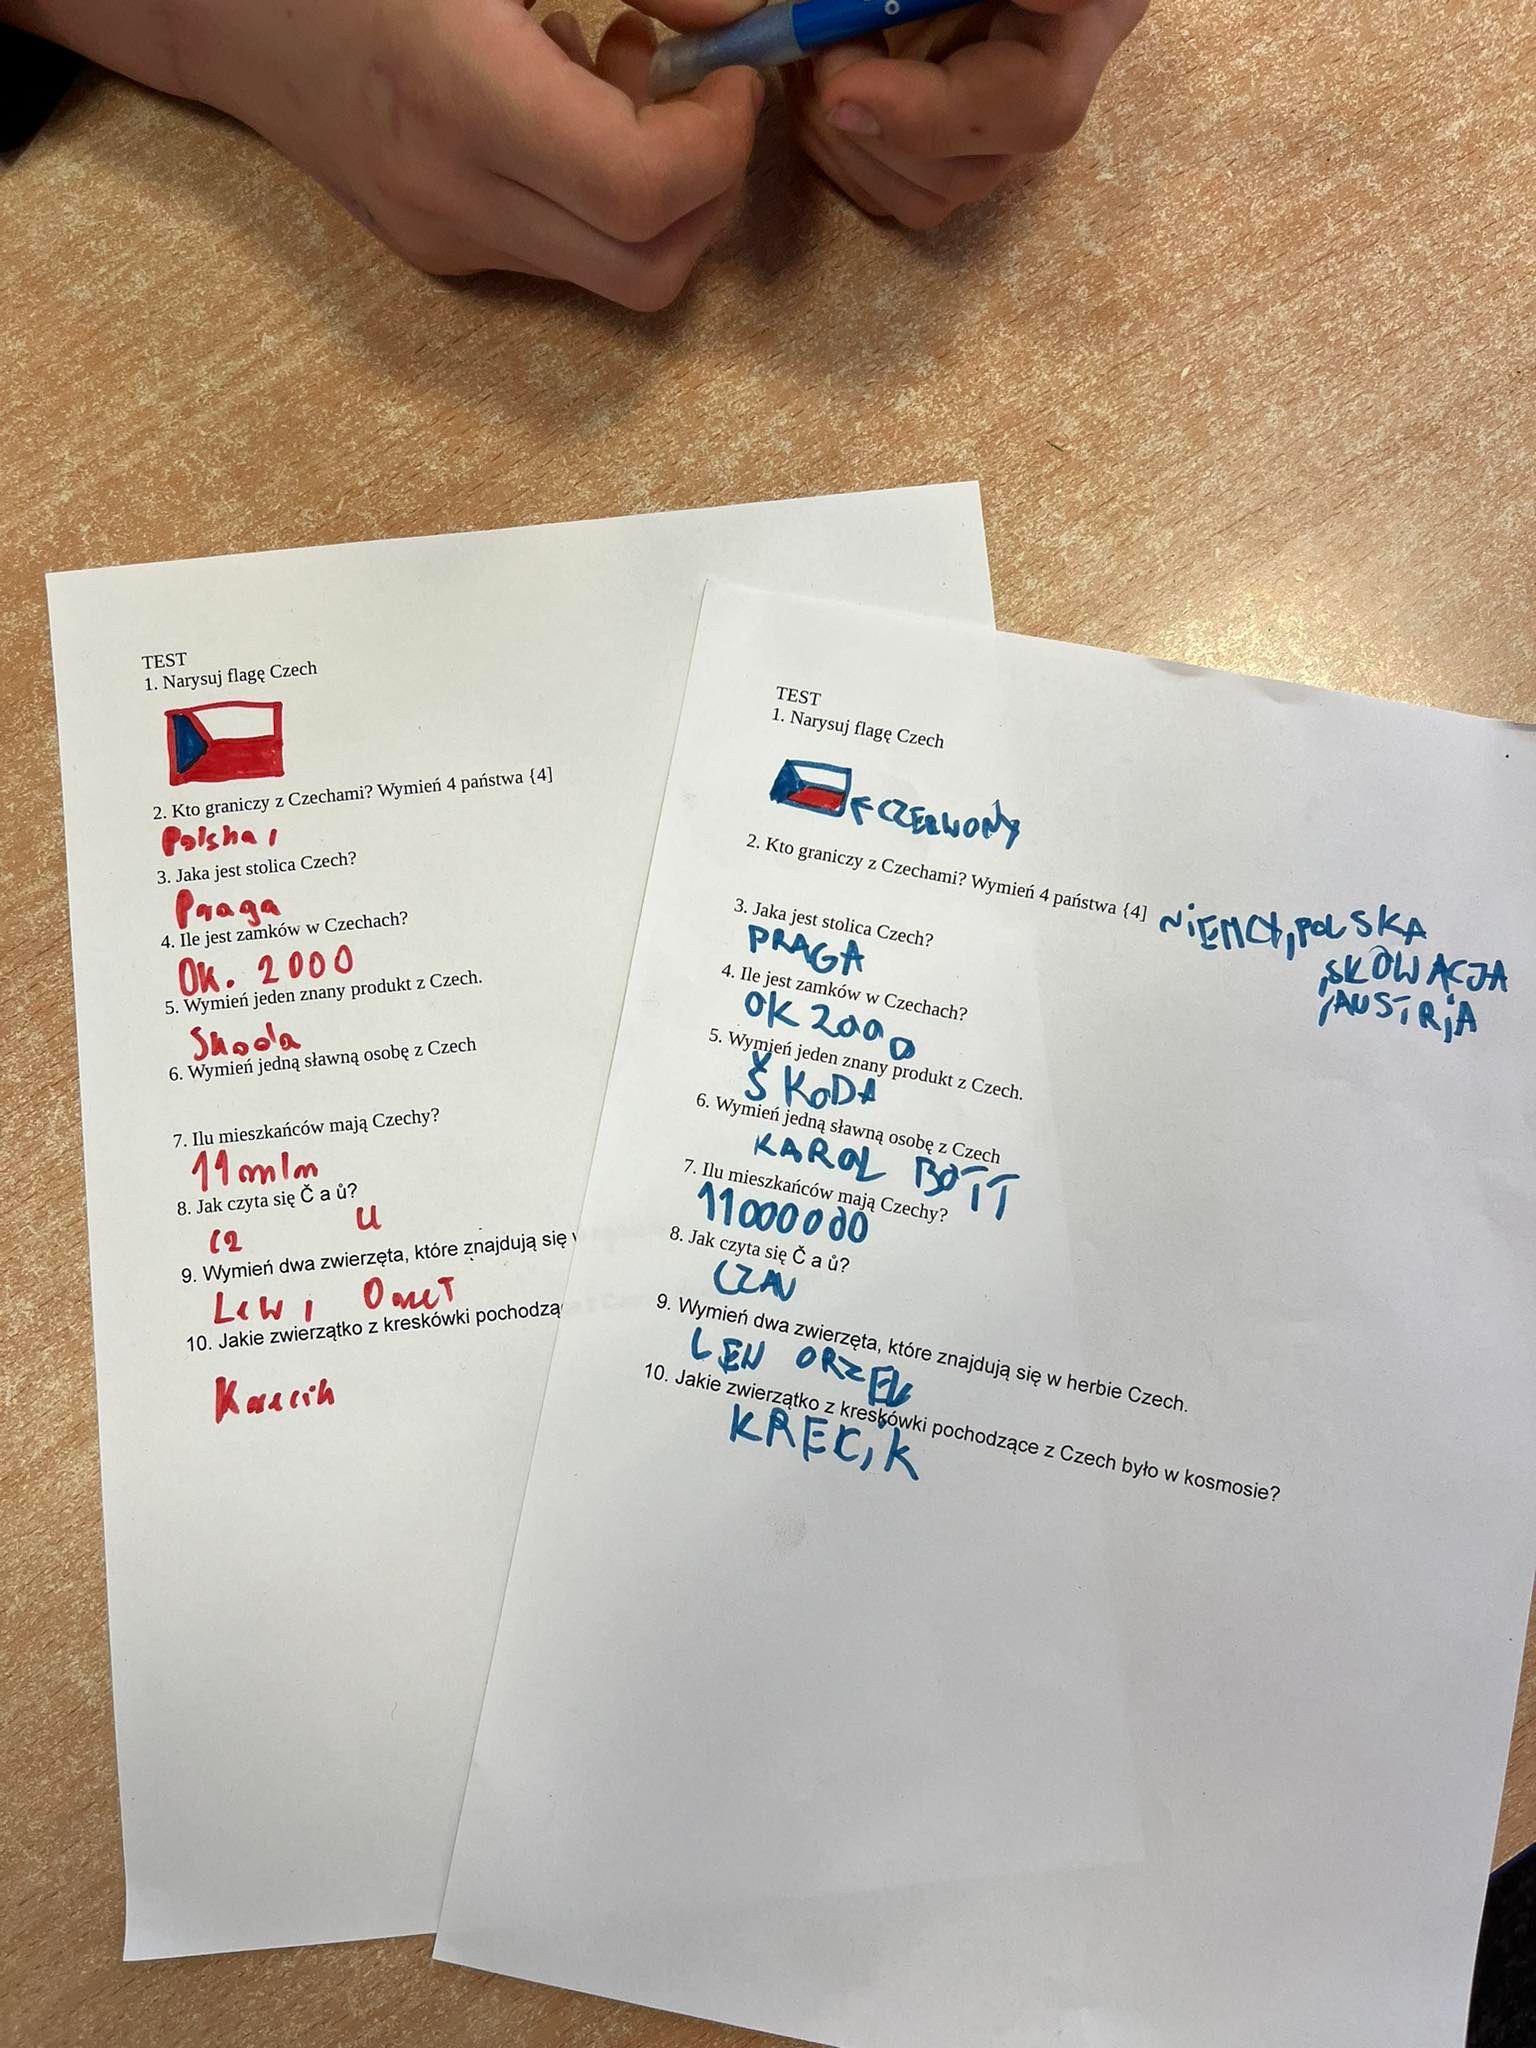 TEST
1. Narysuj flagę Czech
2. Kto graniczy z Czechami? Wymień 4 państwa {4]
Polska,
3. Jaka jest stolica Czech?
Praga
4. Ile jest zamków w Czechach?
OK. 2000
5. Wymień jeden znany produkt z Czech.
Skoda
6. Wymień jedną sławną osobę z Czech
7. Ilu mieszkańców mają Czechy?
11 mln
8. Jak czyta się Č a ů?
CZ U
9. Wymień dwa zwierzęta, które znajdują się
Lew i
10. Jakie zwierzątko z kreskówki
Krecik
TEST
1. Narysuj flagę Czech
CZERWONY
2. Kto graniczy z Czechami? Wymień 4 państwa {4]
NIEMCY, POLSKA
, SŁOWACJA
, AUSTRIA
3. Jaka jest stolica Czech?
PRAGA
4. Ile jest zamków w Czechach?
OK 2000
5. Wymień jeden znany produkt z Czech.
ŠKODA
6. Wymień jedną sławną osobę z Czech
KAROL GOTT
7. Ilu mieszkańców mają Czechy?
11000000
8. Jak czyta się Č a ů?
CZ A U
9. Wymień dwa zwierzęta, które znajdują się w herbie Czech.
LEW ORZEŁ
10. Jakie zwierzątko z kreskówki pochodzące z Czech było w kosmosie?
KRECIK